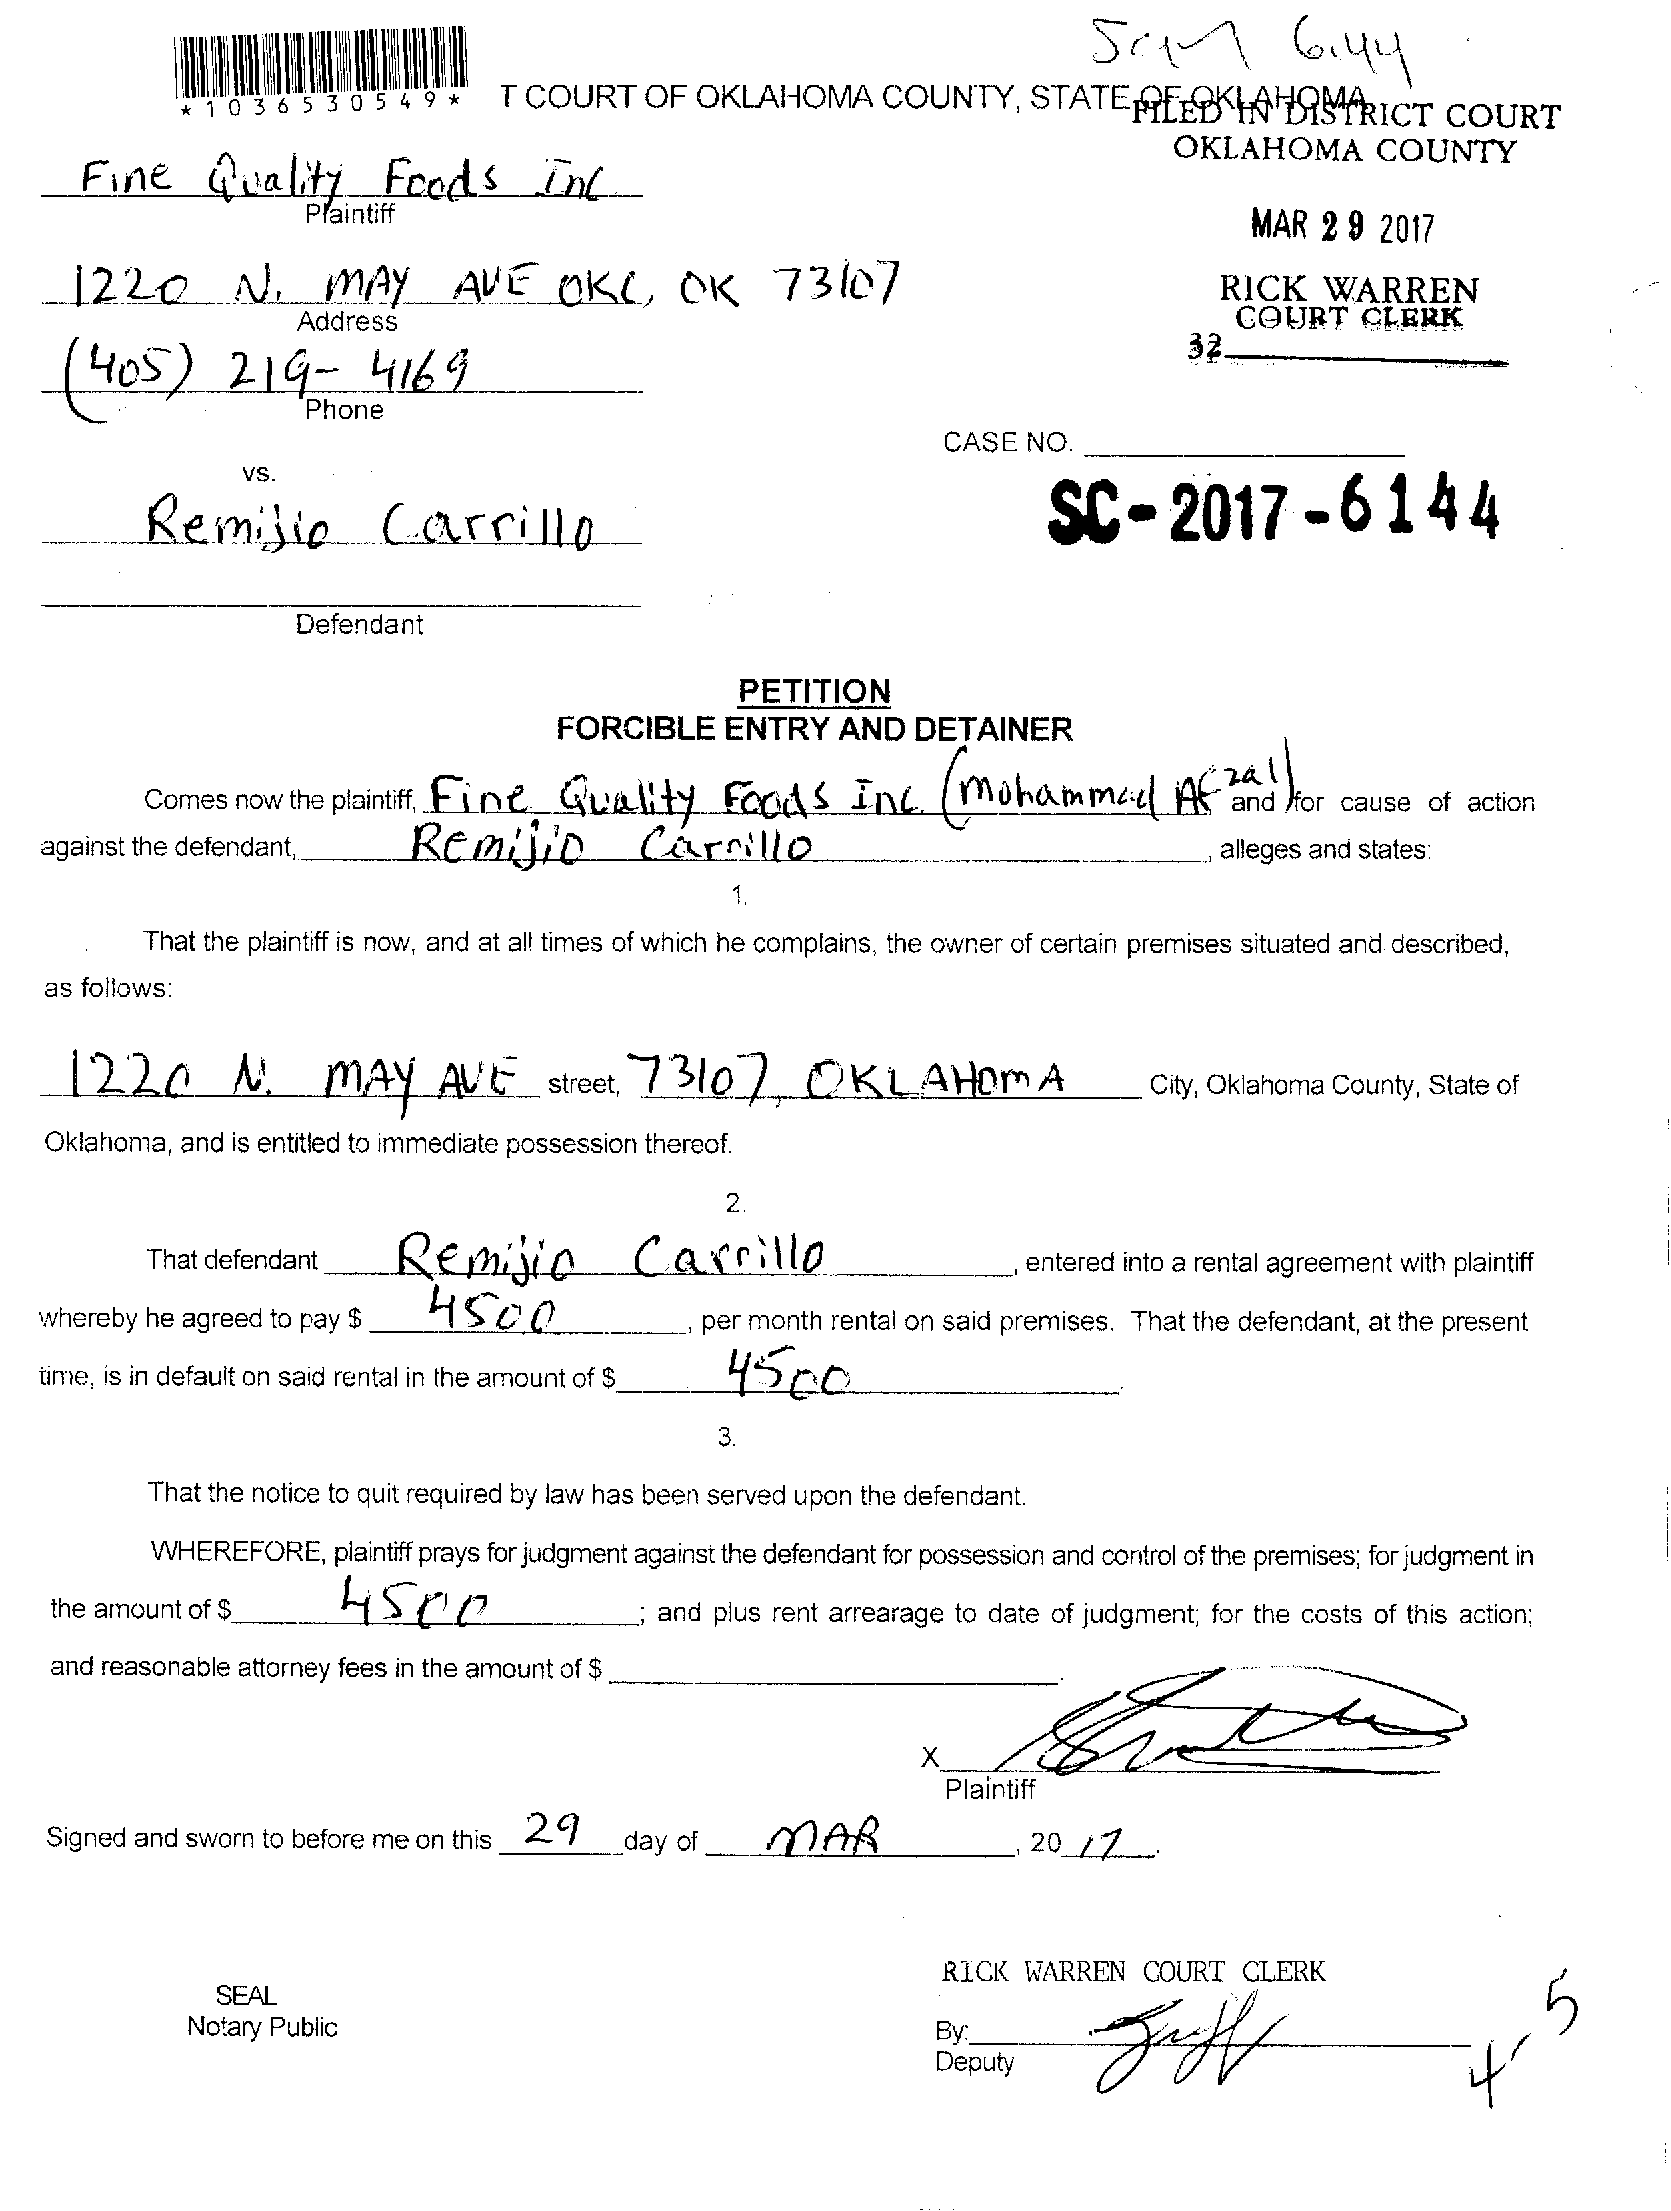 6144
*1036530549*
T COURT OF OKLAHOMA COUNTY, STATE OF OKLAHOMA
FILED IN DISTRICT COURT
OKLAHOMA COUNTY
Fine Quality Foods Inc
Plaintiff
MAR 29 2017
1220 N. MAY AVE OKC, OK 73107
Address
RICK WARREN
COURT CLERK
32
(405) 219-4169
Phone
CASE NO.
vs.
SC-2017-6144
Remijio Carrillo
Defendant
PETITION
FORCIBLE ENTRY AND DETAINER
Comes now the plaintiff, Fine Quality Foods Inc. (Mohammad Afzal) and for cause of action
against the defendant, Remijio Carrillo, alleges and states:
1.
That the plaintiff is now, and at all times of which he complains, the owner of certain premises situated and described,
as follows:
1220 N. MAY AVE street, 73107, OKLAHOMA City, Oklahoma County, State of
Oklahoma, and is entitled to immediate possession thereof.
2.
That defendant Remijio Carrillo, entered into a rental agreement with plaintiff
whereby he agreed to pay $ 4500, per month rental on said premises. That the defendant, at the present
time, is in default on said rental in the amount of $ 4500.
3.
That the notice to quit required by law has been served upon the defendant.
WHEREFORE, plaintiff prays for judgment against the defendant for possession and control of the premises; for judgment in
the amount of $ 4500; and plus rent arrearage to date of judgment; for the costs of this action;
and reasonable attorney fees in the amount of $
X
Plaintiff
Signed and sworn to before me on this 29 day of MAR, 20 17.
RICK WARREN COURT CLERK
SEAL
Notary Public
By:
Deputy
4.5